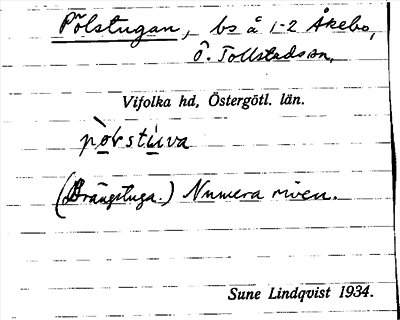 Pölstugan, bs å 1-2 Åkebo,
Ö. Tollstads sn,
Vifolka hd, Östergötl. län.
pòlstúva
(Drängstuga.) Numera riven.
Sune Lindqvist 1934.